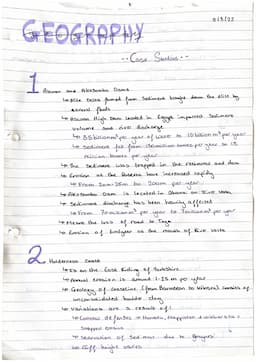 21/3/23
GEOGRAPHY
-- Case Studies --
1 Aswan and Akosombo Dams
↳ Nile Delta formed from sediment brought down the Nile by
annual floods
↳ Aswan High Dam located in Egypt impacted sediment
volume and river discharge
per year of water to 10 billion m³ per year
↳ Sediment fell from 130 million tonnes per year to 15
million tonnes per year
↳ The sediment was trapped in the reservoirs and dam
↳ Erosion at the Rosetta have increased rapidly
↳ From 20m-25m to 200m per year
↳ Akosombo Dam is located in Ghana on River Volta
↳ Sediment discharge has been heavily affected
↳ From m³ per year to m³ per year
↳ Means the loss of road to Togo
↳ Erosion of at the mouth of River Volta
2 Holderness Coast
↳ Is on the East Riding of Yorkshire
↳ Annual erosion is around 1.25 m per year
↳ Geology of coastline (from Barmston to Kilnsea) consists of
unconsolidated boulder clay
↳ Variations are a result of:
↳ Coastal defences → Hornsea, Mappleton & Withernsea
stopped erosion
↳ of sediment due to groynes
↳ Cliff height varies